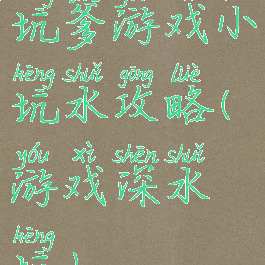 坑爹游戏小
kēng shuǐ gōng lüè
坑水攻略(
yóu xì shēn shuǐ
游戏深水
kēng
坑)